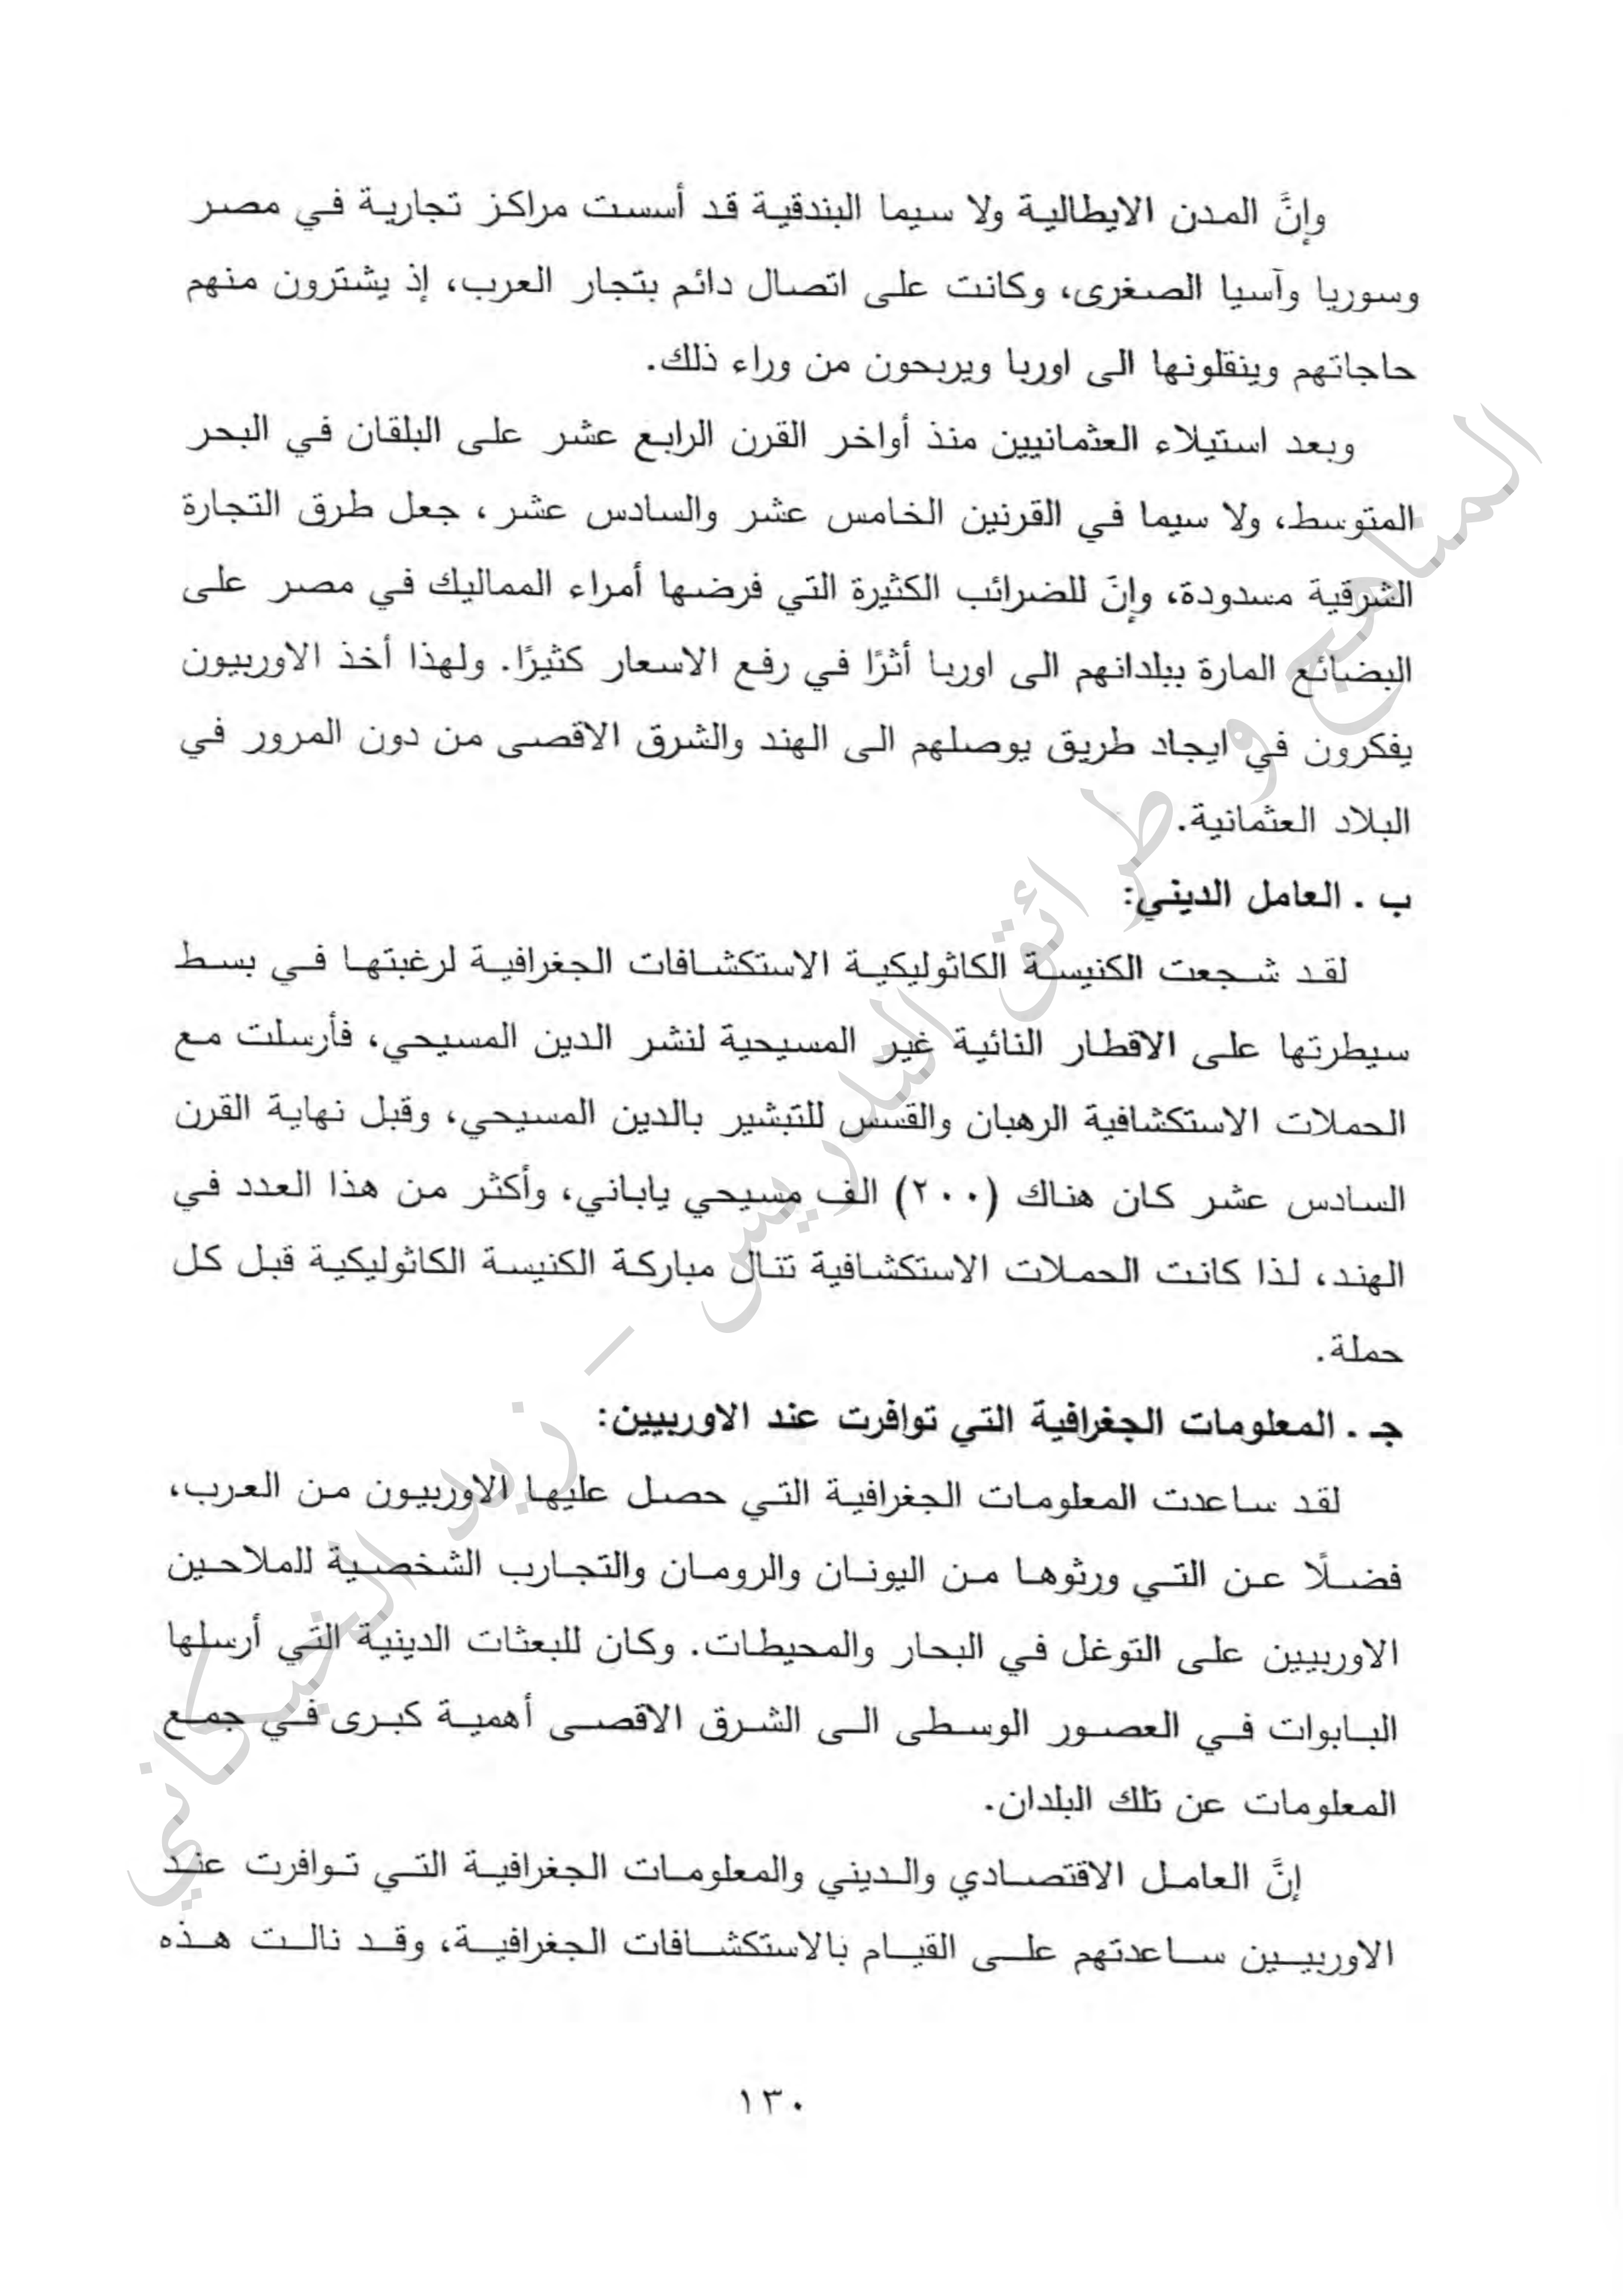 وإنَّ المدن الايطالية ولا سيما البندقية قد أسست مراكز تجارية في مصر
وسوريا وآسيا الصغرى، وكانت على اتصال دائم بتجار العرب، إذ يشترون منهم
حاجاتهم وينقلونها الى اوربا ويربحون من وراء ذلك.
وبعد استيلاء العثمانيين منذ أواخر القرن الرابع عشر على البلقان في البحر
المتوسط، ولا سيما في القرنين الخامس عشر والسادس عشر، جعل طرق التجارة
الشرقية مسدودة، وإنَ للضرائب الكثيرة التي فرضها أمراء المماليك في مصر على
البضائع المارة ببلدانهم الى اوربا أثرًا في رفع الاسعار كثيرًا. ولهذا أخذ الاوربيون
يفكرون في ايجاد طريق يوصلهم الى الهند والشرق الاقصى من دون المرور في
البلاد العثمانية.
ب . العامل الديني:
لقد شجعت الكنيسة الكاثوليكية الاستكشافات الجغرافية لرغبتها في بسط
سيطرتها على الاقطار النائية غير المسيحية لنشر الدين المسيحي، فأرسلت مع
الحملات الاستكشافية الرهبان والقسس للتبشير بالدين المسيحي، وقبل نهاية القرن
السادس عشر كان هناك (٢٠٠) الف مسيحي ياباني، وأكثر من هذا العدد في
الهند، لذا كانت الحملات الاستكشافية تنال مباركة الكنيسة الكاثوليكية قبل كل
حملة.
جـ . المعلومات الجغرافية التي توافرت عند الاوربيين:
لقد ساعدت المعلومات الجغرافية التي حصل عليها الاوربيون من العرب،
فضلًا عن التي ورثوها من اليونان والرومان والتجارب الشخصية للملاحين
الاوربيين على التوغل في البحار والمحيطات. وكان للبعثات الدينية التي أرسلها
البابوات في العصور الوسطى الى الشرق الاقصى أهمية كبرى في جمع
المعلومات عن تلك البلدان.
إنَّ العامل الاقتصادي والديني والمعلومات الجغرافية التي توافرت عند
الاوربيين ساعدتهم على القيام بالاستكشافات الجغرافية، وقد نالت هذه
١٣٠
المناهج و طرائق التدريس – زيد الخيكاني